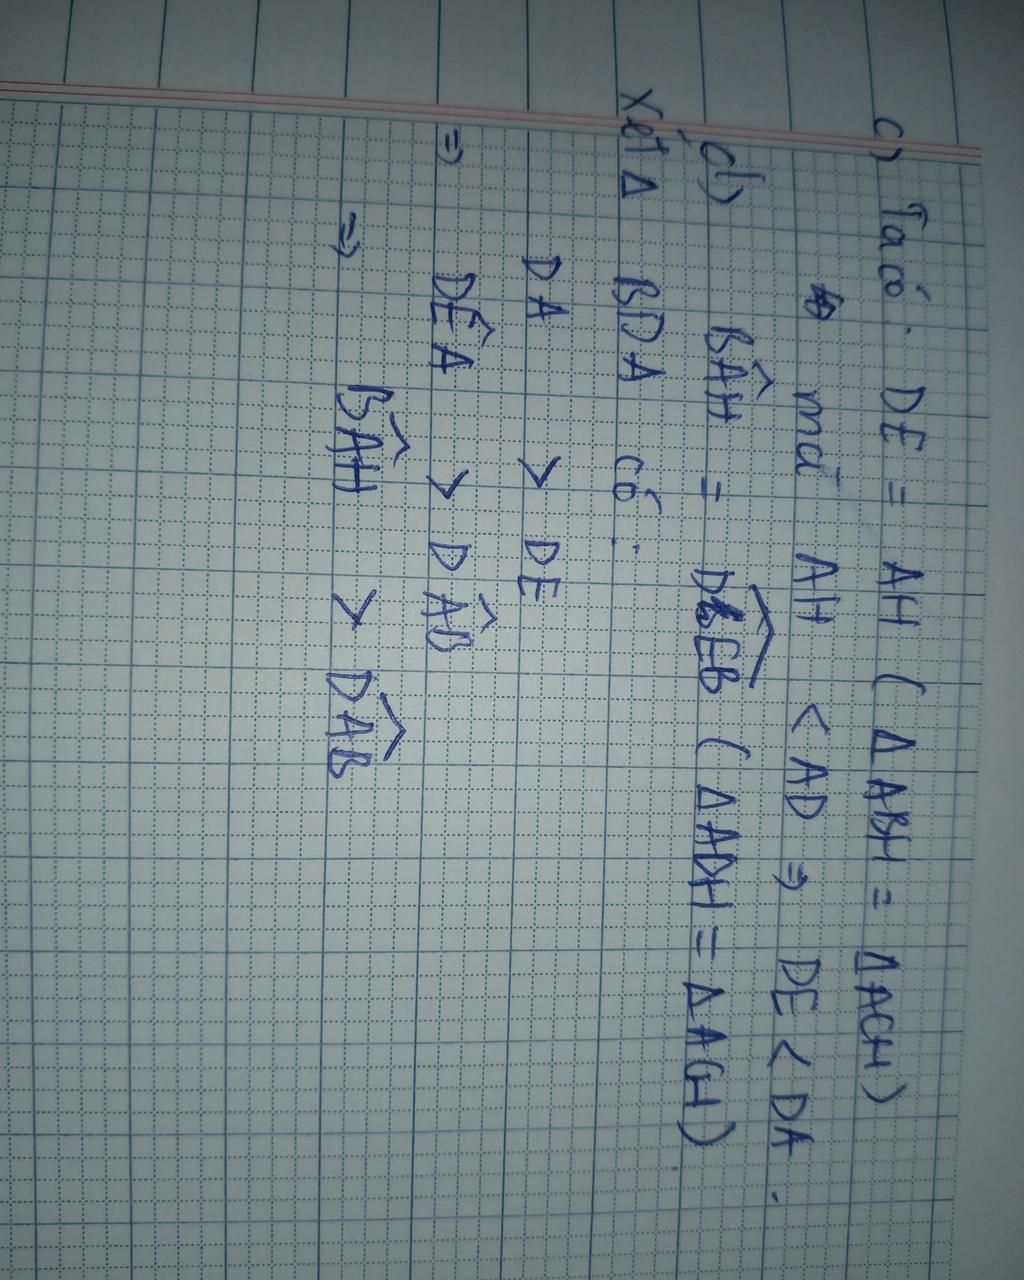 c) Ta có: DE = AH ( Δ ABH = Δ ACH)
mà AH < AD ⇒ DE < DA.
d) BÂH = DEB ( Δ ADH = Δ ACH)
Xét Δ BDA có:
DA > DE
⇒ DÊA > DÂB
⇒ BÂH > DÂB